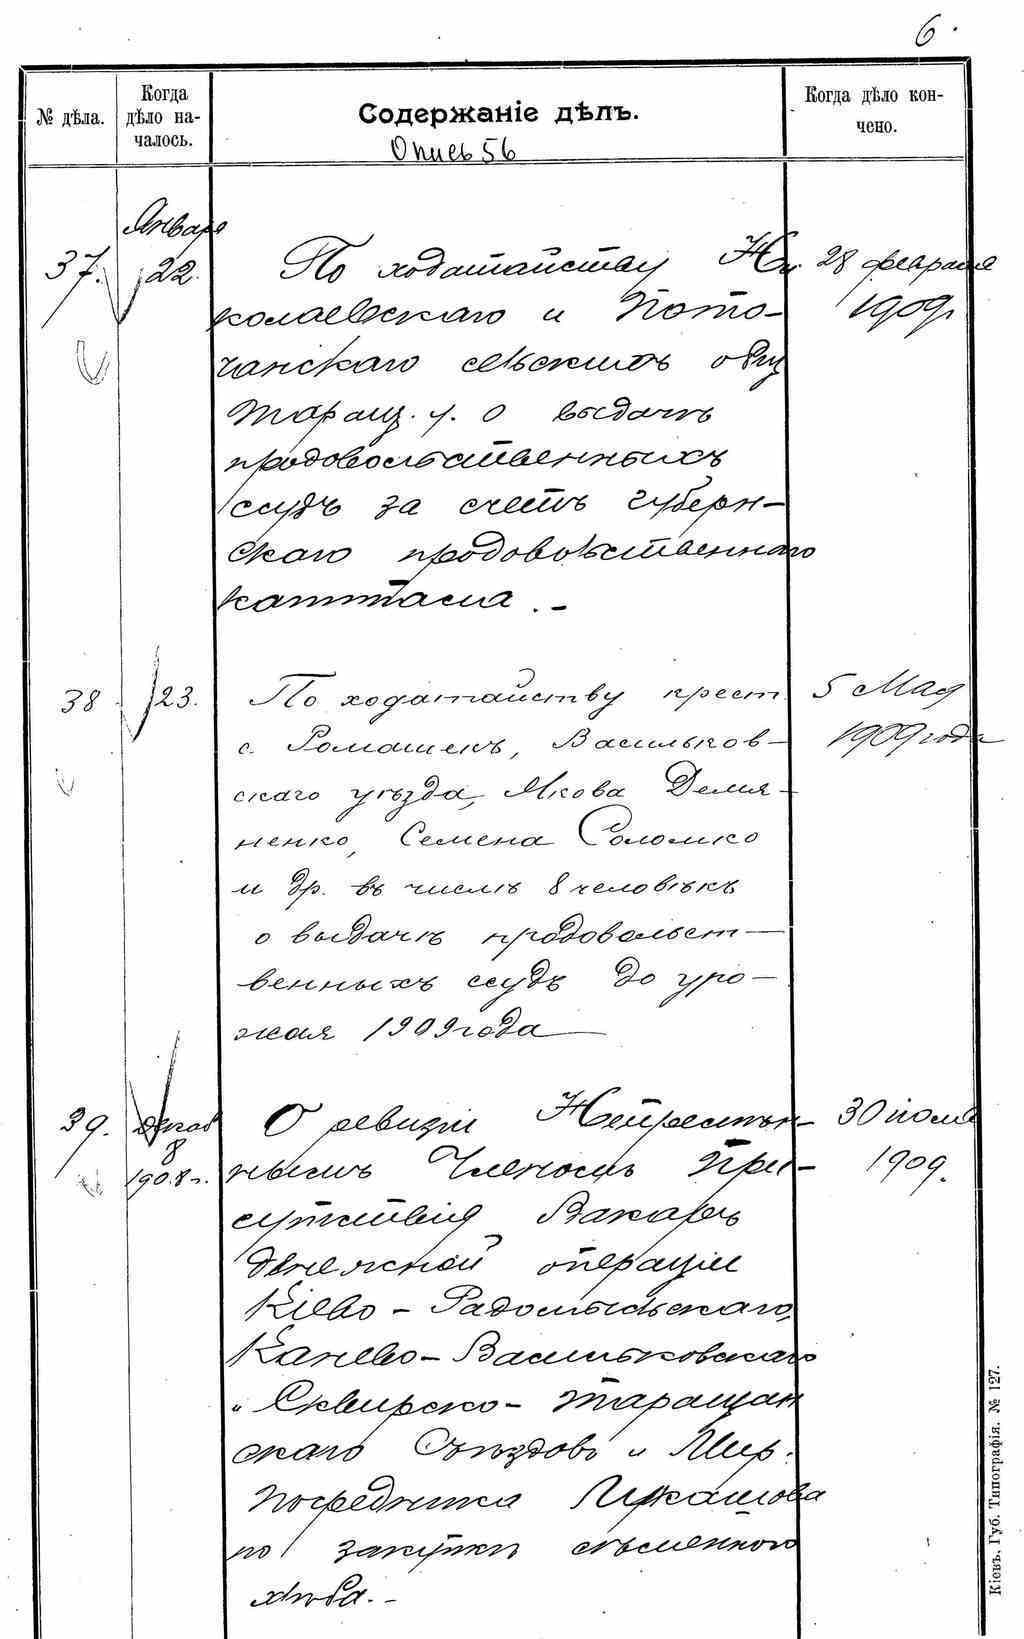 6.
№ дѣла.
Когда
дѣло на-
чалось.
Содержаніе дѣлъ.
Опись 56
Когда дѣло кон-
чено.
Января
37. 22. По ходатайству Ни 28 февраля
колаевскаго и Пото- 1909г
чанскаго сельскихъ общ
Таращ. у. о выдачѣ
продовольственныхъ
ссудъ за счетъ губерн-
скаго продовольственнаго
капитала.-
38 23. По ходатайству крест. 5 Мая
с. Ромашекъ, Васильков- 1909 года
скаго уѣзда, Якова Демя-
ненко, Семена Соломко
и др. въ числѣ 8 человѣкъ
о выдачѣ продовольст-
венныхъ ссудъ до уро-
жая 1909 года
39. Декаб О ревизіи Непремѣн- 30 іюля
8
1908 г. нымъ Членомъ При- 1909.
сутствія Вакаръ
денежной операціи
Кіево-Радомысльскаго,
Канево-Васильковскаго
и Сквирско-Таращан
скаго Съѣздовъ и Мир.
посредника Лукашова
по закупкѣ сѣменного
хлѣба.-
Кіевъ, Губ. Типографія. № 127.